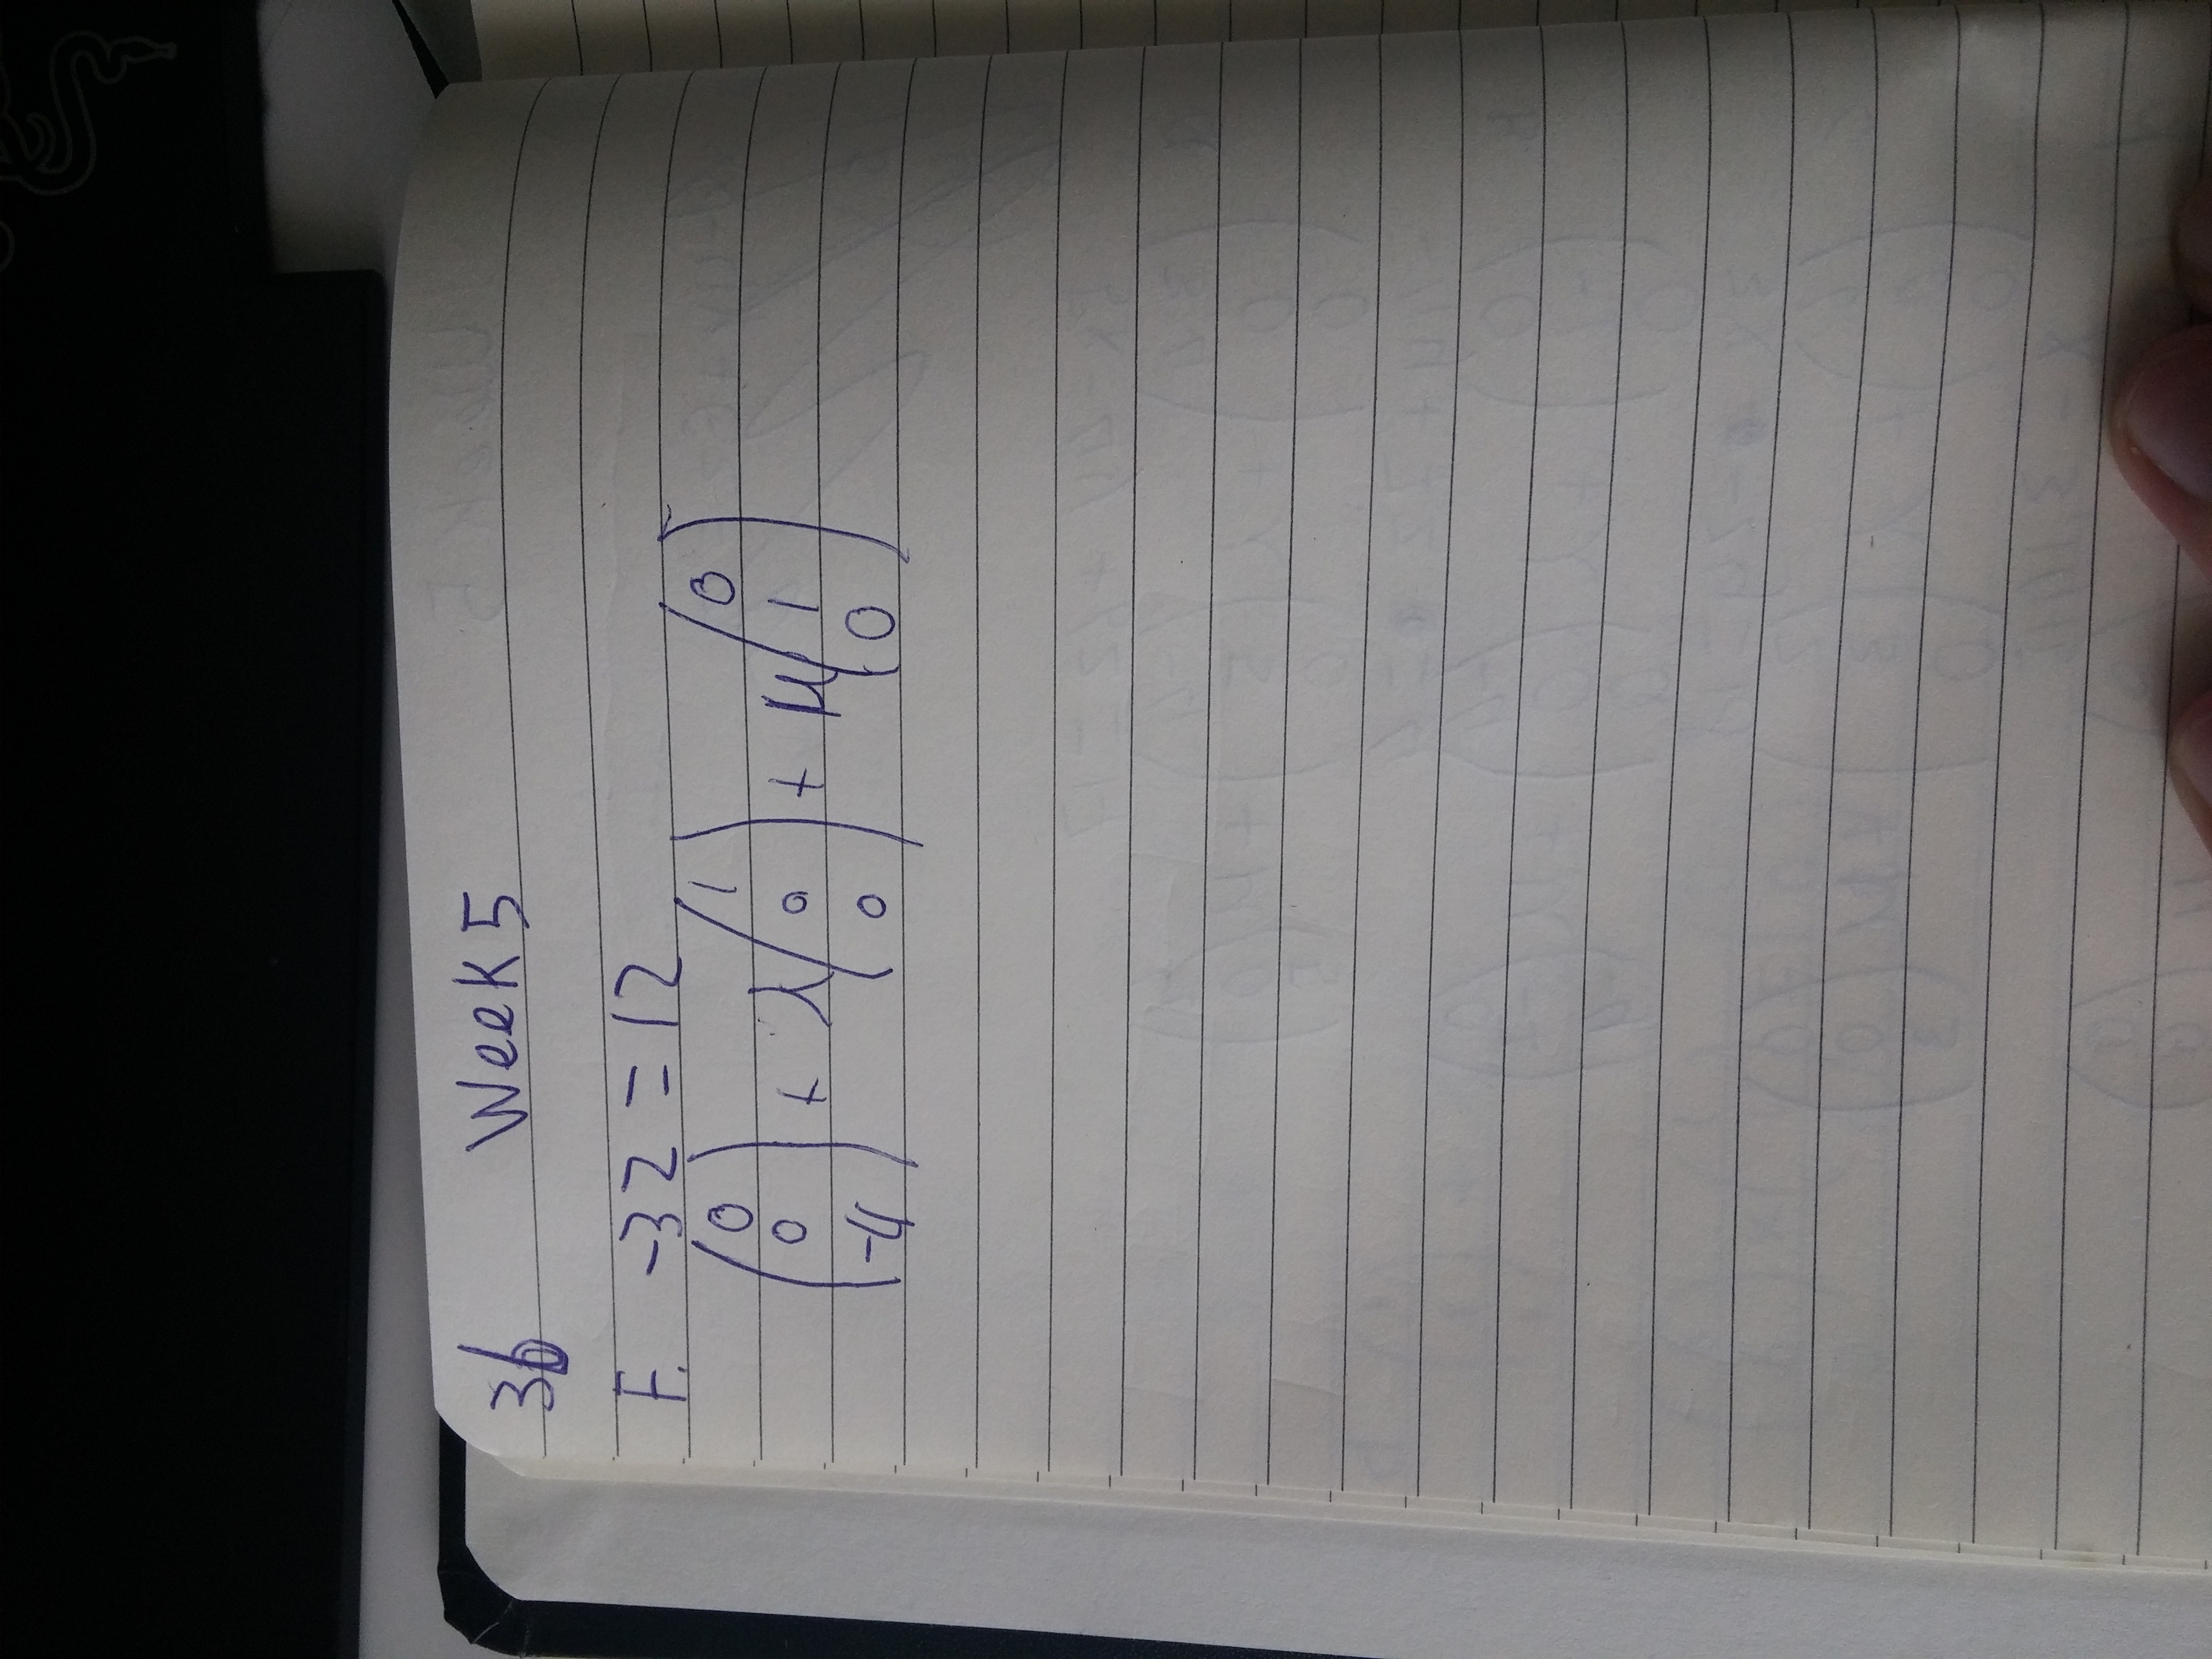 36 Week 5
F. -3z = 12
(0 0 -4) + λ(1 0 0) + μ(0 1 0)